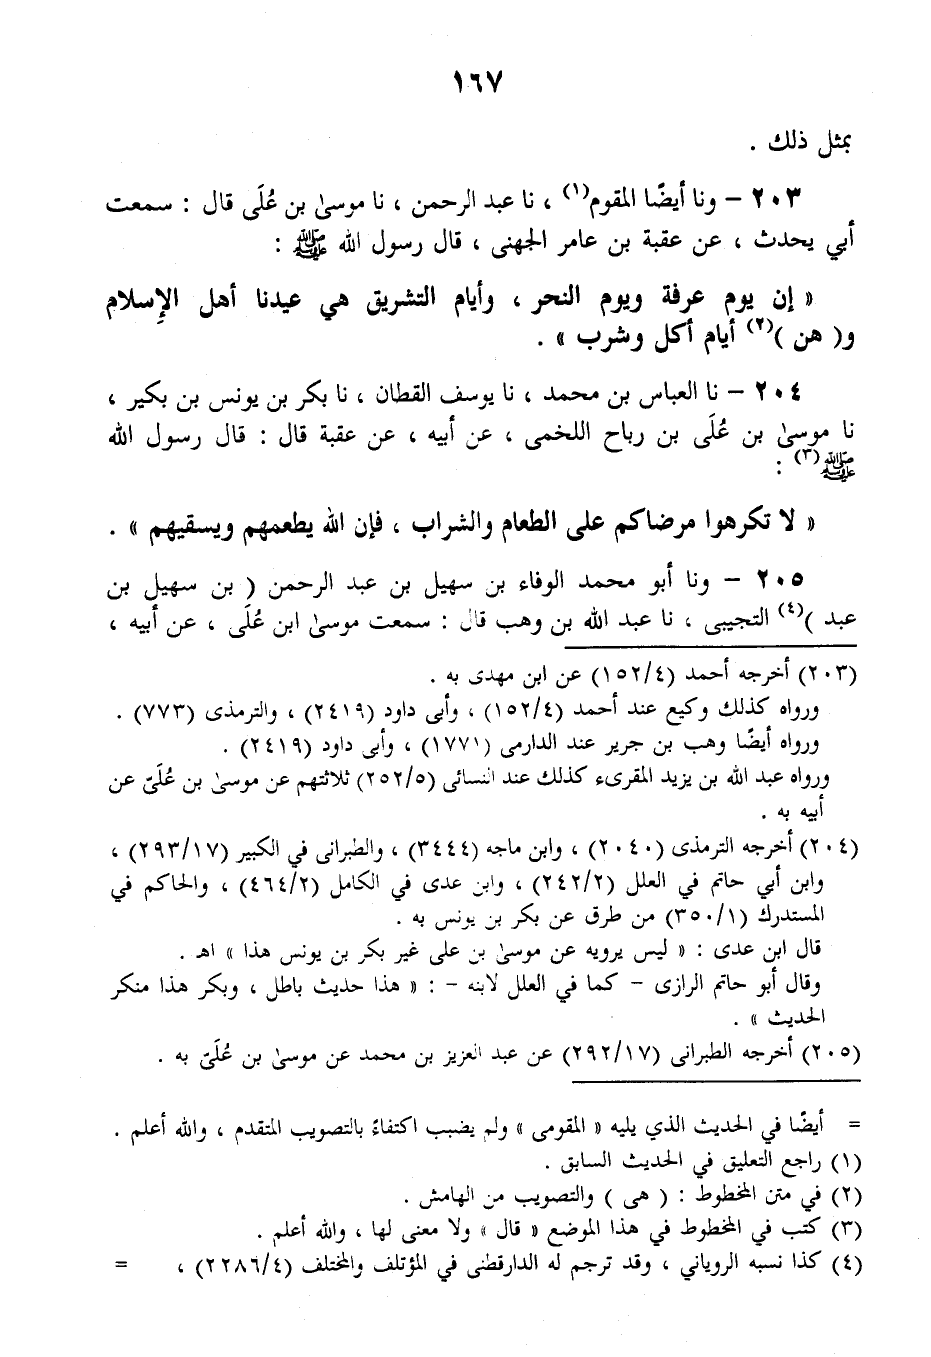 ١٦٧
بمثل ذلك .
٢٠٣ – ونا أيضًا المقوم(١) ، نا عبد الرحمن ، نا موسىٰ بن عُلَى قال : سمعت
أبي يحدث ، عن عقبة بن عامر الجهنى ، قال رسول الله ﷺ :
« إن يوم عرفة ويوم النحر ، وأيام التشريق هي عيدنا أهل الإِسلام
و( هن )(٢) أيام أكل وشرب » .
٢٠٤ – نا العباس بن محمد ، نا يوسف القطان ، نا بكر بن يونس بن بكير ،
نا موسىٰ بن عُلَى بن رباح اللخمى ، عن أبيه ، عن عقبة قال : قال رسول الله
ﷺ(٣) :
« لا تكرهوا مرضاكم على الطعام والشراب ، فإن الله يطعمهم ويسقيهم » .
٢٠٥ – ونا أبو محمد الوفاء بن سهيل بن عبد الرحمن ( بن سهيل بن
عبد )(٤) التجيبى ، نا عبد الله بن وهب قال : سمعت موسىٰ ابن عُلَى ، عن أبيه ،
(٢٠٣) أخرجه أحمد (١٥٢/٤) عن ابن مهدى به .
ورواه كذلك وكيع عند أحمد (١٥٢/٤) ، وأبى داود (٢٤١٩) ، والترمذى (٧٧٣) .
ورواه أيضًا وهب بن جرير عند الدارمى (١٧٧١) ، وأبى داود (٢٤١٩) .
ورواه عبد الله بن يزيد المقرىء كذلك عند النسائى (٢٥٢/٥) ثلاثتهم عن موسىٰ بن عُلَىّ عن
أبيه به .
(٢٠٤) أخرجه الترمذى (٢٠٤٠) ، وابن ماجه (٣٤٤٤) ، والطبرانى في الكبير (٢٩٣/١٧) ،
وابن أبي حاتم في العلل (٢٤٢/٢) ، وابن عدى في الكامل (٤٦٤/٢) ، والحاكم في
المستدرك (٣٥٠/١) من طرق عن بكر بن يونس به .
قال ابن عدى : « ليس يرويه عن موسىٰ بن على غير بكر بن يونس هذا » اهـ .
وقال أبو حاتم الرازى – كما في العلل لابنه – : « هذا حديث باطل ، وبكر هذا منكر
الحديث » .
(٢٠٥) أخرجه الطبرانى (٢٩٢/١٧) عن عبد العزيز بن محمد عن موسىٰ بن عُلَىّ به .
= أيضًا في الحديث الذي يليه « المقومى » ولم يضبب اكتفاءً بالتصويب المتقدم ، والله أعلم .
(١) راجع التعليق في الحديث السابق .
(٢) في متن المخطوط : ( هى ) والتصويب من الهامش .
(٣) كتب في المخطوط في هذا الموضع « قال » ولا معنى لها ، والله أعلم .
(٤) كذا نسبه الرويانى ، وقد ترجم له الدارقطنى في المؤتلف والمختلف (٢٢٨٦/٤) ، =